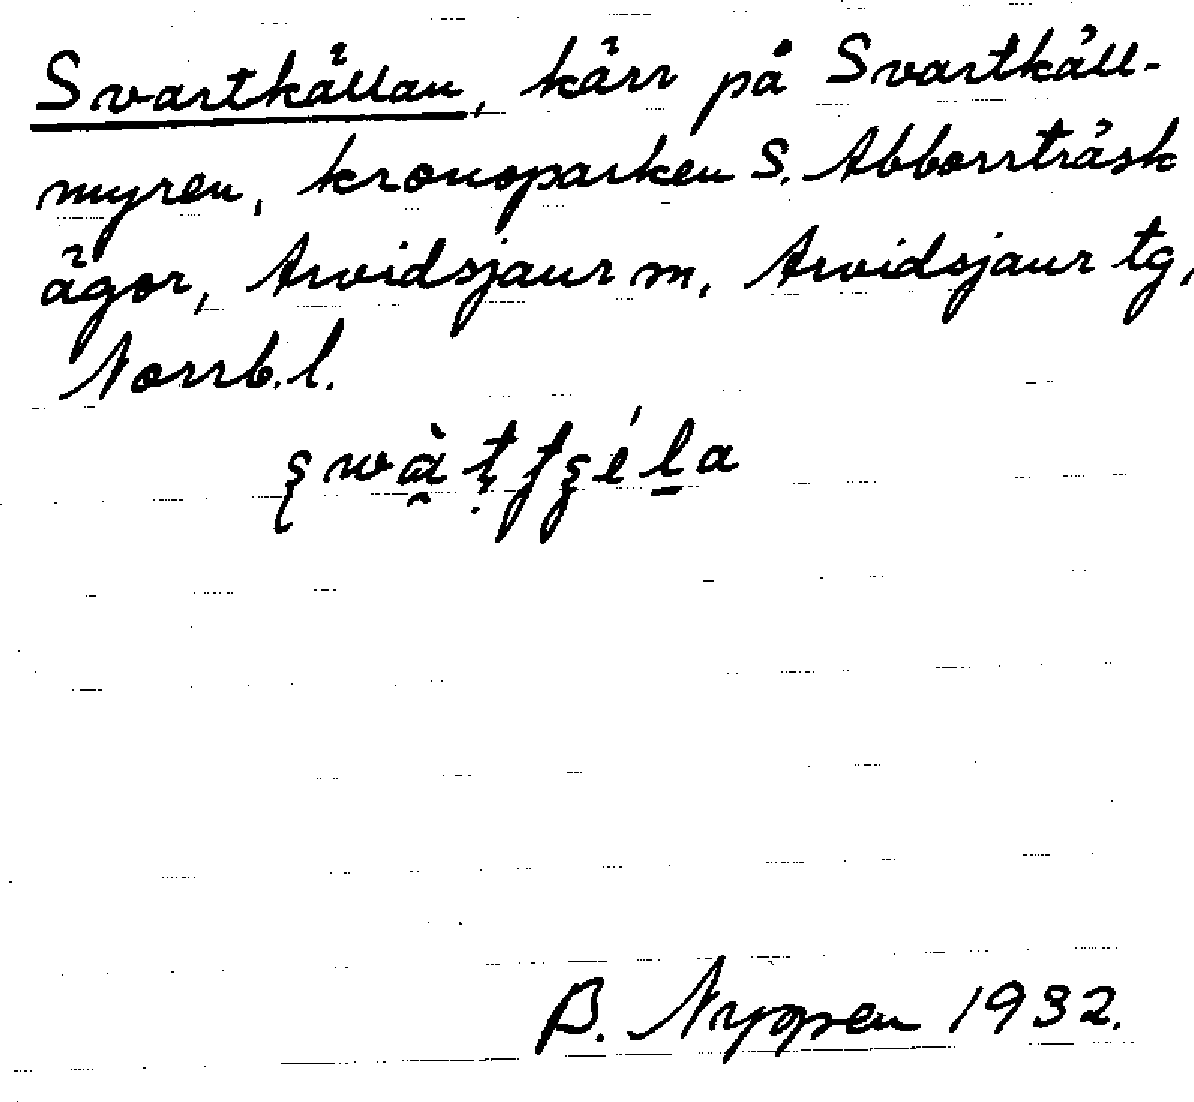 Svartkällan, kärr på Svartkäll-
myren, kronoparken S. Abborrträsk
ägor, Arvidsjaur m, Arvidsjaur tg,
Norrb.l.
B. Nyppen 1932.